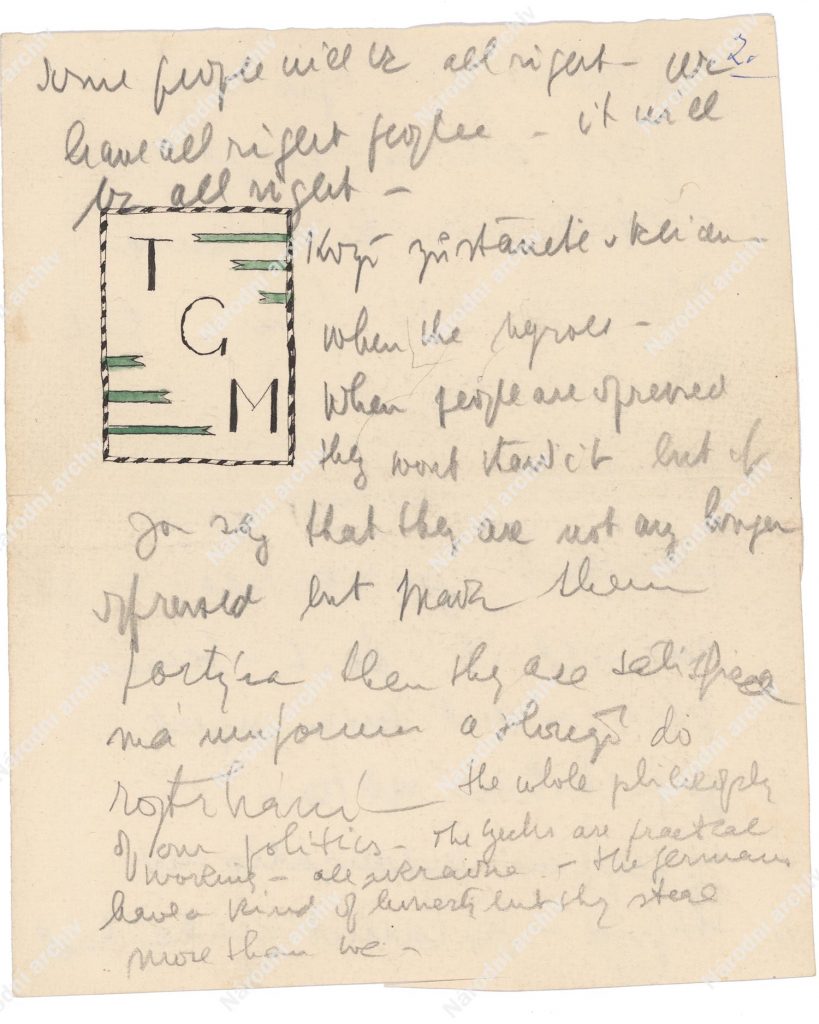 2.
some people will be all right – we
have all right people – it will
be all right –
T
G
M
Když zůstanete v klidu –
when the
when people are opressed
they wont stand it but if
you say that they are not any longer
opressed but make them
portýra then they are satisfied
má uniformu a slouží do
roztrhání – the whole philosophy
of our politics – The Czechs are practical
working – all ukraine – the germans
have a kind of honesty but they steal
more than we –
Národní archiv